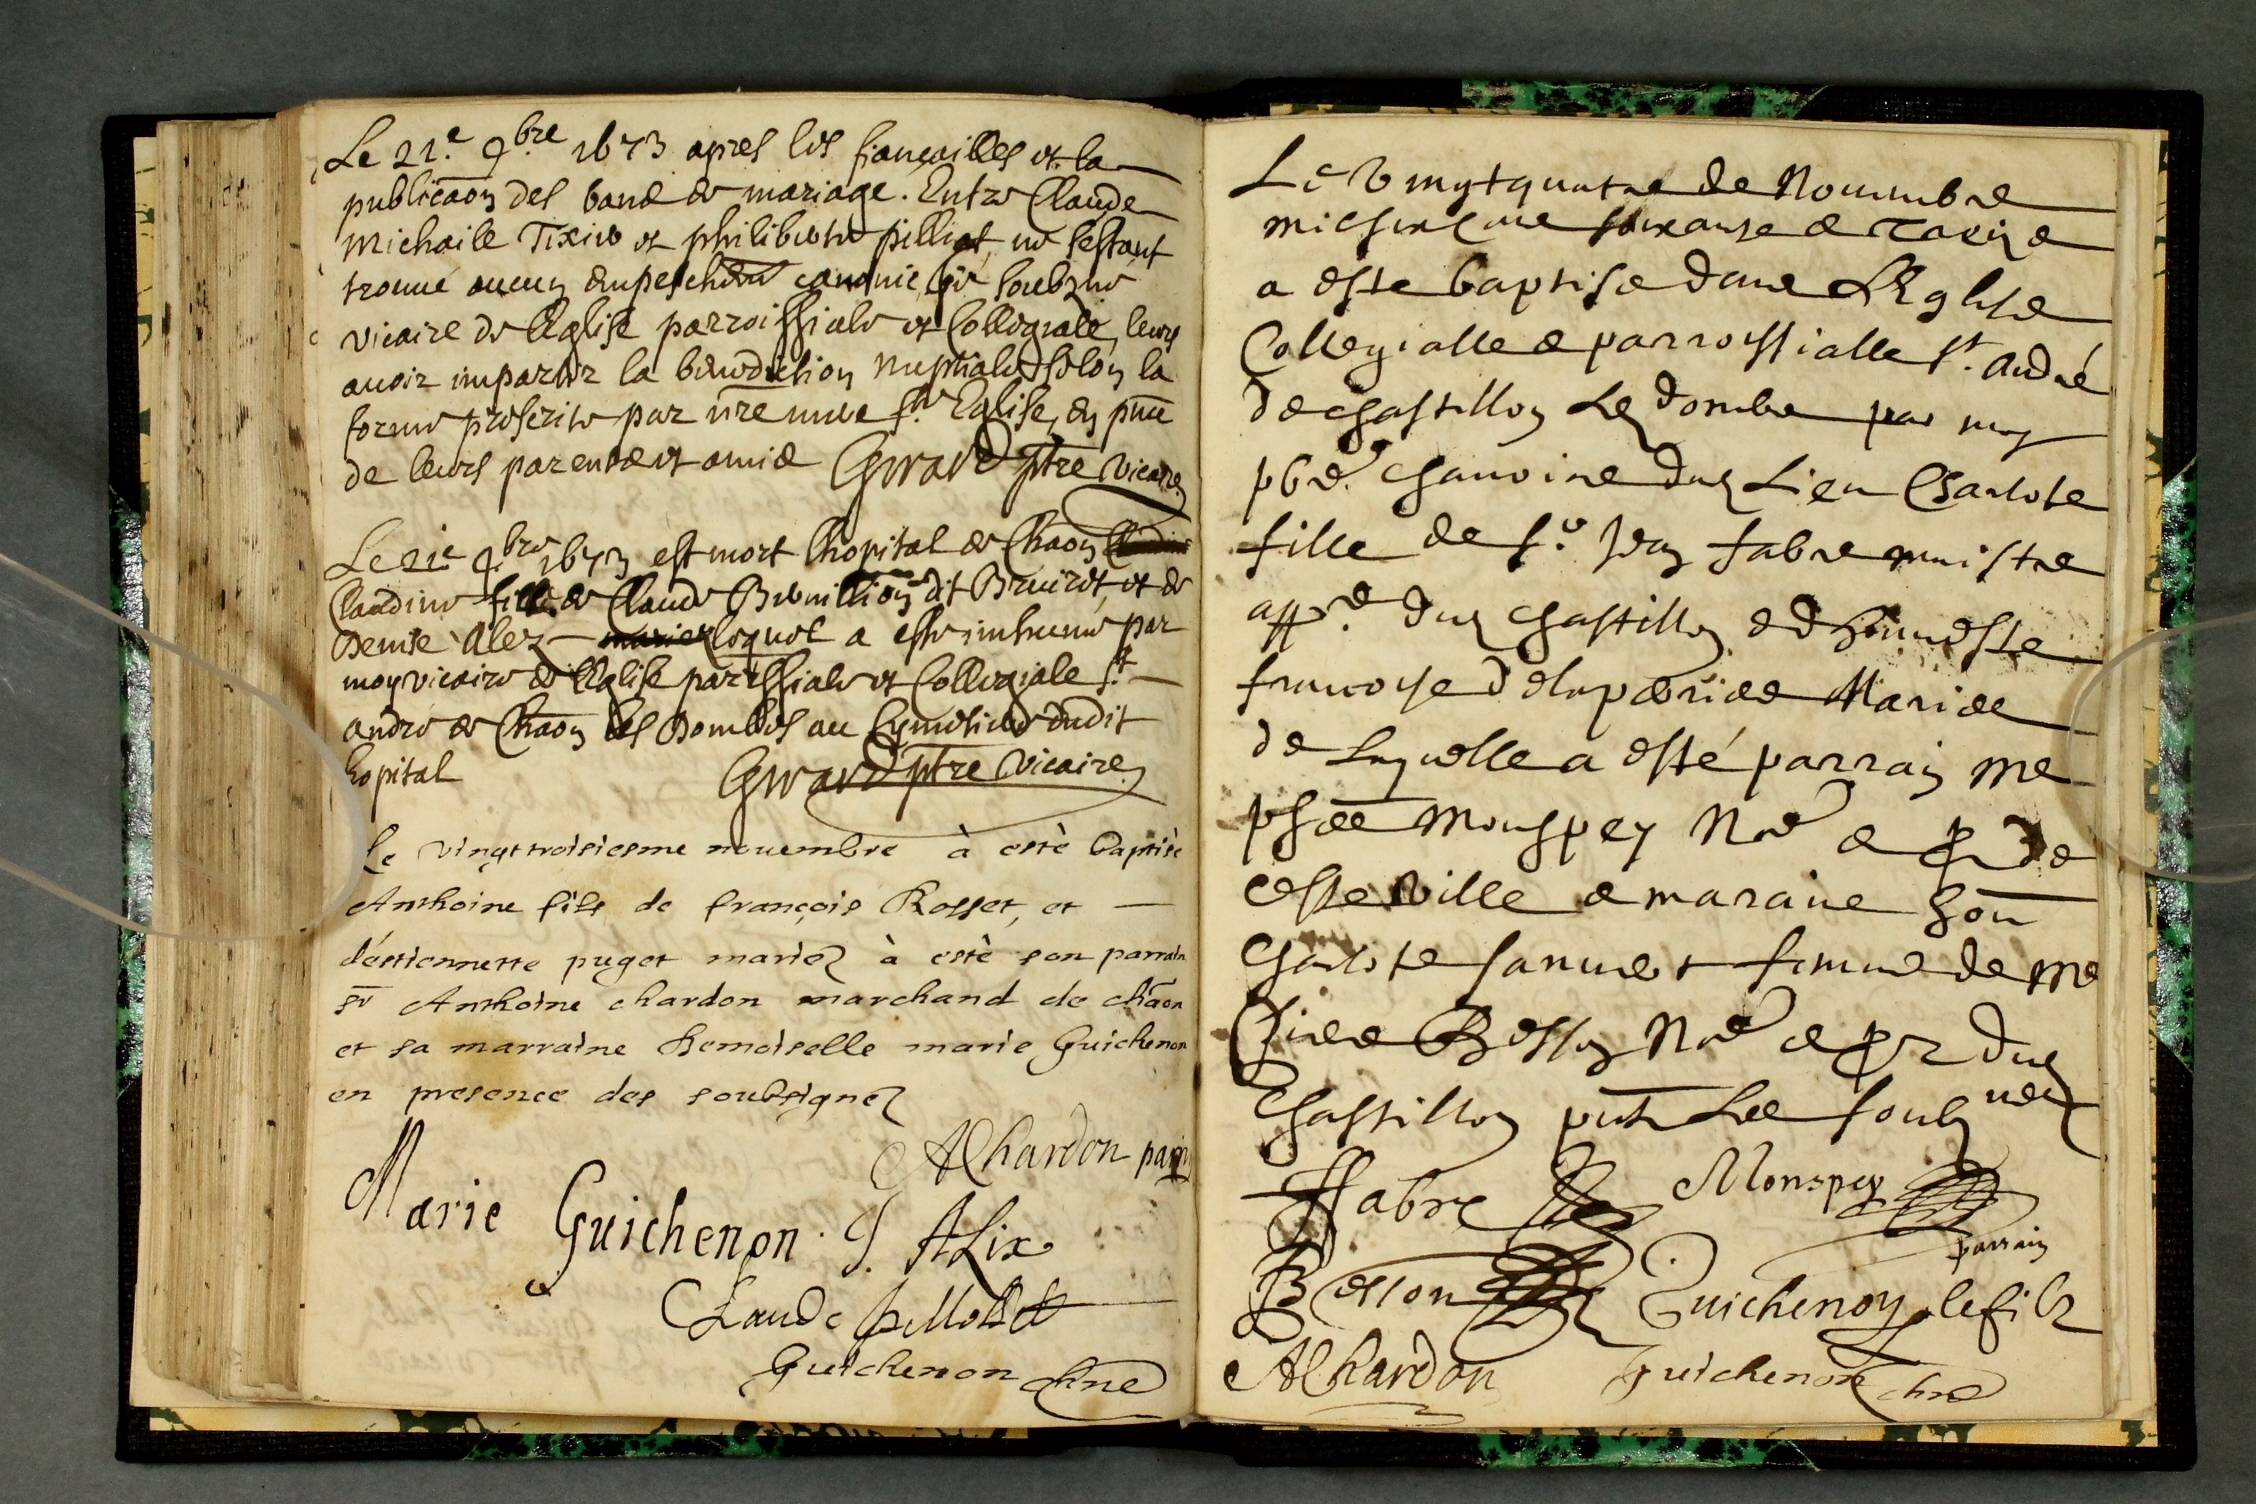 Le 21.e 9.bre 1673 apres les fiançailles et la
publicãon des bans de mariage. Entre Claude
Michaile Tixier et philiberte pilliat, ne sestant
trouué aucun empeschem̃t canonic soubz.né
vicaire de lEglise parroissiale et Collegiale, leurs
auoir impartir la benediction nuptiale selon la
forme prescrite par nr̃e mere s.te Eglise, en pñce
de leurs parents et amis Girard ptre vicaire
Le 21e 9.bre 1673 est mort lhopital de Chãon
Claudine fille de Claude Breuillion dit Bruirot, et de
Denise Alez loquot a este inhumé par
moy vicaire de lEglise parissiale et Collegiale s.t
andré de Chãon les Dombes au Cymetiere dudit
hopital Girard ptre vicaire
Le vingttroisiesme nouembre à estè baptisè
Anthoine fils de françois Rosset, et
d'estiennette puget mariez à estè son parrain
sr Anthoine chardon marchand de chãon
et sa marraine Demoiselle marie Guichenon
en presence des soubsignez
AChardon parrin
Marie Guichenon. J. ALix
Claude pillot
Guichenon chne
Le Vingtquatre de Nouembre
mil six cens soixante & treize
a este baptise dans LEglise
Collegialle & parroissialle st. André
de chastillon Les dombes par moy
pbre. chanoine dud Lieu Charlote
fille de s.r Jean fabre maistre
app.re dud chastillon & d honneste
francoyse delaperiere Mariee
de Laquelle a esté parrain me
phee Monspey Nore & pr de
ceste Ville & maraine hon
Charlote Januet femme de me
Besson Nore & pr dud
Chastillon pnt Les soubz nez
ffabre Monspey
parrain
Besson Guichenon le filz
AChardon Guichenon chne